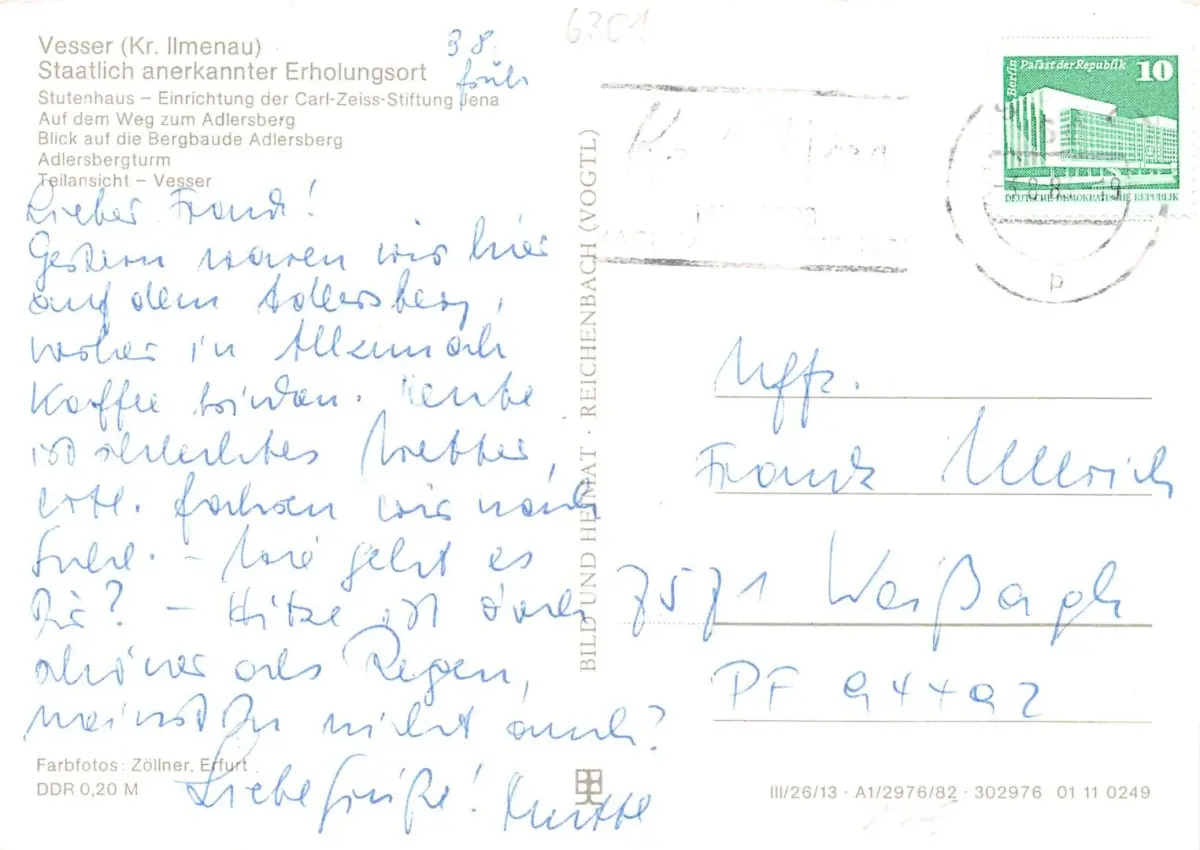 Vesser (Kr. Ilmenau)
Staatlich anerkannter Erholungsort
Stutenhaus – Einrichtung der Carl-Zeiss-Stiftung Jena
Auf dem Weg zum Adlersberg
Blick auf die Bergbaude Adlersberg
Adlersbergturm
Teilansicht – Vesser
3 8.
früh
Gestern waren wir hier
auf dem Adlersberg,
vorher in
Kaffee trinken. Heute
ist schlechtes Wetter,
evtl. fahren wir nach
Suhl. – Wie geht es
Dir? – Hitze ist doch
schöner als Regen,
meinst Du nicht auch?
Liebe Grüße! Mutti
Farbfotos: Zöllner, Erfurt
DDR 0,20 M
BILD UND HEIMAT · REICHENBACH (VOGTL)
6301
Berlin Palast der Republik 10
DEUTSCHE DEMOKRATISCHE REPUBLIK
p
Uffz.
Frank Ullrich
7571 Weißagk
PF 94492
III/26/13 · A1/2976/82 · 302976 01 11 0249